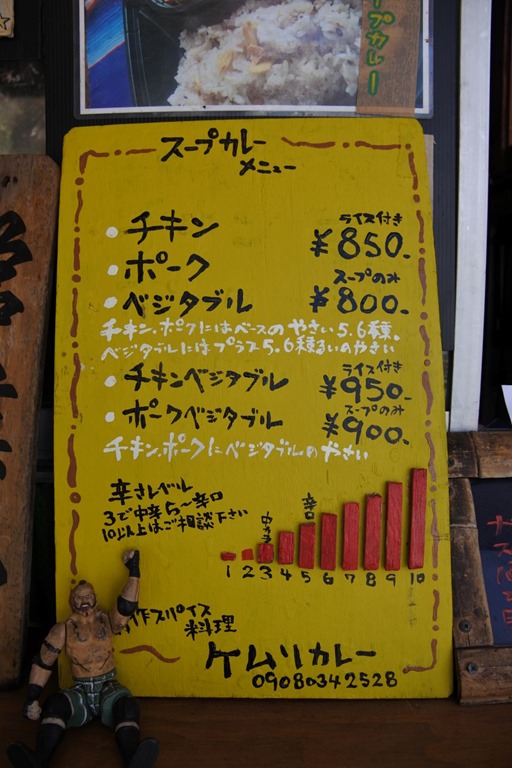 プカレー
スープカレー
メニュー
ライス付き
・チキン ¥850.-
・ポーク スープのみ
・ベジタブル ¥800.-
チキン、ポークにはベースのやさい5、6種。
ベジタブルにはプラス5、6種るいのやさい
ライス付き
・チキンベジタブル ¥950-
スープのみ
・ポークベジタブル ¥900.-
チキン、ポークにベジタブルのやさい
辛さレベル
3で中辛 5〜辛口
10以上はご相談下さい
中辛 辛口
1 2 3 4 5 6 7 8 9 10
作スパイス
料理
ケムリカレー
09080342528